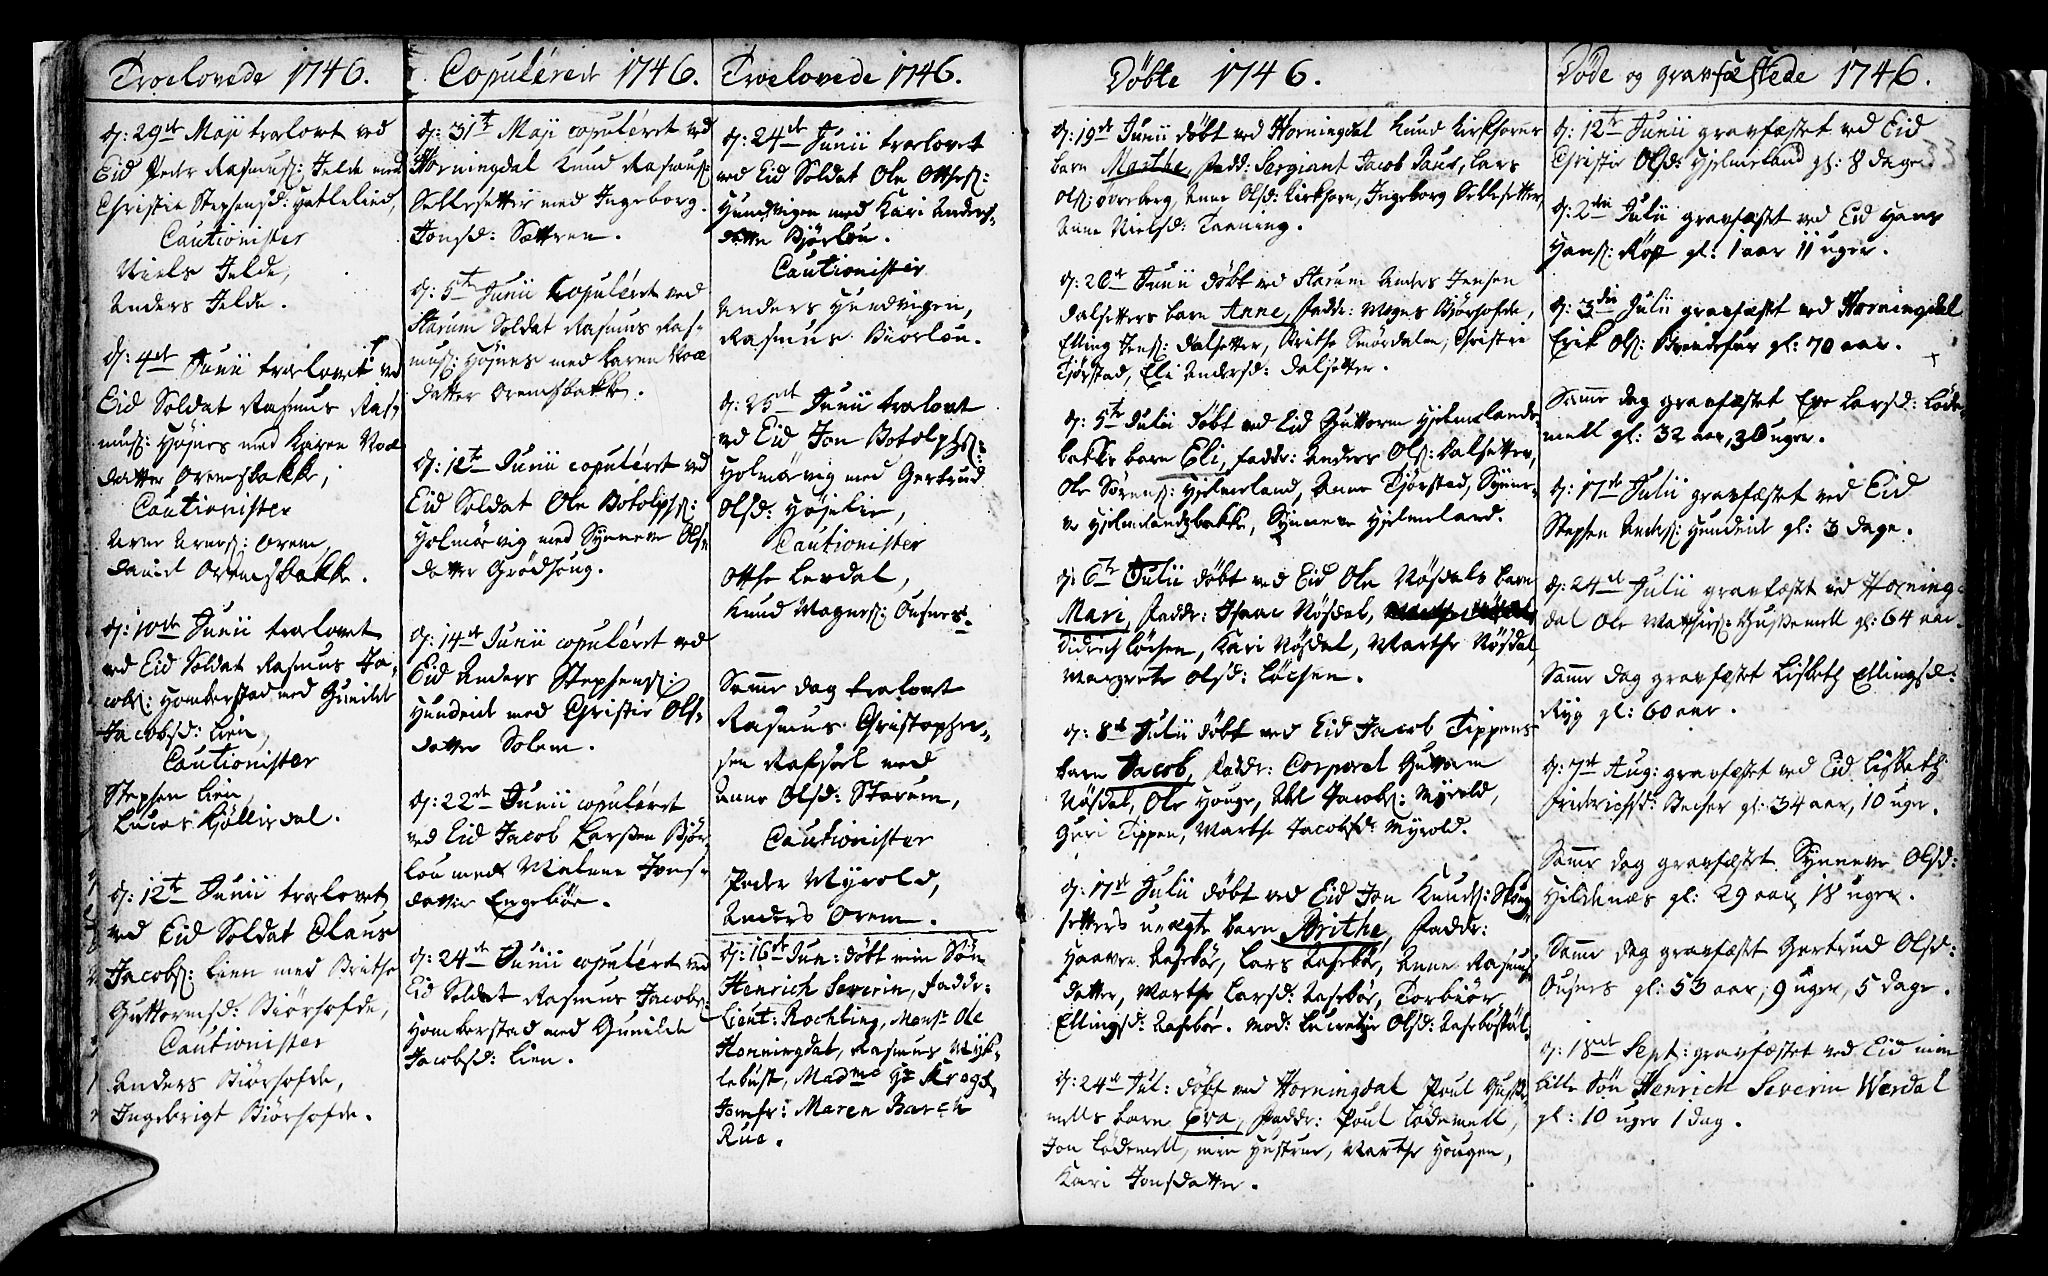 Troelovede 1746.
d: 29de Maji troelovet ved
Eid Peder Rasmuss: Jelde med
Christie Stephensd: Hatlelied,
Cautionister
Niels Jelde,
Anders Jelde.
d: 4de Junii troelovet ved
Eid Soldat Rasmus Ras-
muss: Højnes med Karen Noæ
datter Oremsbakke,
Cautionister
Arne Arness: Orem,
David Oremsbakke.
d: 10de Junii troelovet
ved Eid Soldat Rasmus Ja-
cobs: Homberstad med Gunilde
Jacobsd: Lien,
Cautionister
Stephen Lien,
Lucas Kjøllisdal.
d: 12te Junii troelovet
ved Eid Soldat Claus
Jacobs: Lien med Brithe
Guttormsd: Biørhofde,
Cautionister
Anders Biørhofde,
Ingebrigt Biørhofde.
Copulérede 1746.
d: 31te Maji copuléret ved
Horningdal Knud Rasmuss:
Sellesetter med Ingeborg
Jonsd: Sættren.
d: 5te Junii copuléret ved
Starum Soldat Rasmus Ras-
muss: Højnes med Karen Noæ
datter Oremsbakke.
d: 12te Junii copuléret ved
Eid Soldat Ole Botolphs:
Holmøevig med Synneve Ols-
datter Grødsong.
d: 14de Junii copuléret ved
Eid Anders Stephens:
Hundeide med Christie Ols-
datter Solem.
d: 22de Junii copuléret
ved Eid Jacob Larssen Bjør-
lou med Malene Jons-
datter Engebøe.
d: 24de Junii copuléret ved
Eid Soldat Rasmus Jacobs:
Homberstad med Gunilde
Jacobsd: Lien.
Troelovede 1746.
d: 24de Junii troelovet
ved Eid Soldat Ole Otthes:
Hundvigen med Kari Anders-
datter Bjørlou.
Cautionister
Anders Hundvigen,
Rasmus Biørlou.
d: 25de Junii troelovet
ved Eid Jon Botolphs:
Holmøevig med Gertrud
Olsd: Højelie,
Cautionister
Otthe Levdal,
Knud Magness: Ousnes.
Samme dag troelovet
Rasmus Christopher-
sen Rafsæl med
Anne Olsd: Starum,
Cautionister
Peder Myrold,
Anders Orem.
d: 16de Jun: døbt min Søn
Henrich Severin, Faddr:
Lieut: Rochling, Mons: Ole
Honningdal, Rasmus Mykl-
lebust, Madme Hr Krogs,
Jomfr: Maren Barch
Rue.
Døbte 1746.
d: 19de Junii døbt ved Horningdal Knud Kirkhorns
barn Marthe, Fadd: Sergiant Jacob Daus, Lars
Ols: Øvreberg, Anne Olsd: Kirkhorn, Ingeborg Sellesetter,
Anne Nielsd: Taening.
d: 26de Junii døbt ved Starum Anders Jensen
Dalsetters barn Anne, Faddr: Mogns Bjørhofde,
Elling Jens: Dalsetter, Brithe Smørdalen, Christi
Tjørstad, Eli Andersd: Dalsetter.
d: 5te Julii døbt ved Eid Guttorm Hjelmelands-
bakks barn Eli, Faddr: Anders Ols: Dalsetter,
Ole Sørens: Hjelmeland, Anne Tjørstad, Synne-
ve Hjelmelandsbakke, Synneve Hjelmeland.
d: 6te Julii døbt ved Eid Ole Nøsdals barn
Mari, Faddr: Isaac Nøsdal,
Didrich Løchen, Kari Nøsdal, Marthe Nøsdal,
Margrete Olsd: Løchen.
d: 8de Julii døbt ved Eid Jacob Tippens
barn Jacob, Faddr: Corporal Guttorm
Nøsdal, Ole Houge, Abl Jacobs: Myrold,
Guri Tippen, Marthe Jacobsd: Myrold.
d: 17de Julii døbt ved Eid Jon Knuds: Skong-
setters uægte barn Brithe, Faddr:
Haaver Aasebøe, Lars Aasebøe, Anne Rasmus-
datter, Marthe Larsd: Aasebøe, Torbiør
Ellingsd: Aasebøe. Mod: Lucretie Olsd: Aasebøstøl
d: 24de Jul: døbt ved Horningdal Poul Huste-
mells barn Eva, Faddr: Poul Lødemell,
Jon Lødemell, min Hustrue, Marthe Hougen,
Kari Jonsdatter.
Døde og gravfæstede 1746.
33
d: 12te Junii gravfæstet ved Eid
Christie Olsd: Hjelmeland gl: 8 dage.
d: 2den Julii gravfæstet ved Eid Hans
Hans: Røs gl: 1 aar 11 uger.
d: 3die Julii gravfæstet ved Horningdal
Erik Ols: gl: 70 aar.
Samme dag gravfæstet Eve Larsd: Løde-
mell gl: 32 aar, 30 uger.
d: 17de Julii gravfæstet ved Eid
Stephen Anders: Hundeide gl: 3 dage.
d: 24de Julii gravfæstet ved Horning-
dal Ole Matthiess: Hustemell gl: 64 aar.
Samme dag gravfæstet Lisbeth Ellingsd:
Ryg gl: 60 aar.
d: 7de Aug: gravfæstet ved Eid Lisbeth
Friderichsd: Becher gl: 34 aar, 10 uger.
Samme dag gravfæstet Synneve Olsd:
Hildenæs gl: 29 aar 18 uger.
Samme dag gravfæstet Gertrud Olsd:
Ousnes gl: 53 aar, 9 uger, 5 dage.
d: 18de Sept: gravfæstet ved Eid min
lille Søn Henrich Severin Wærdal
gl: 10 uger 1 dag.